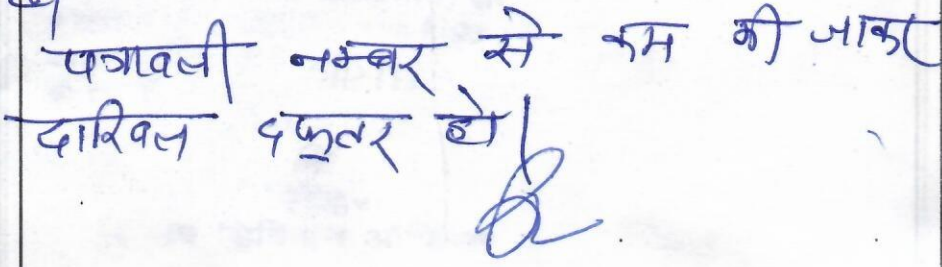 पत्रावली नम्बर से कम की जाकर
दाखिल दफ्तर हो।